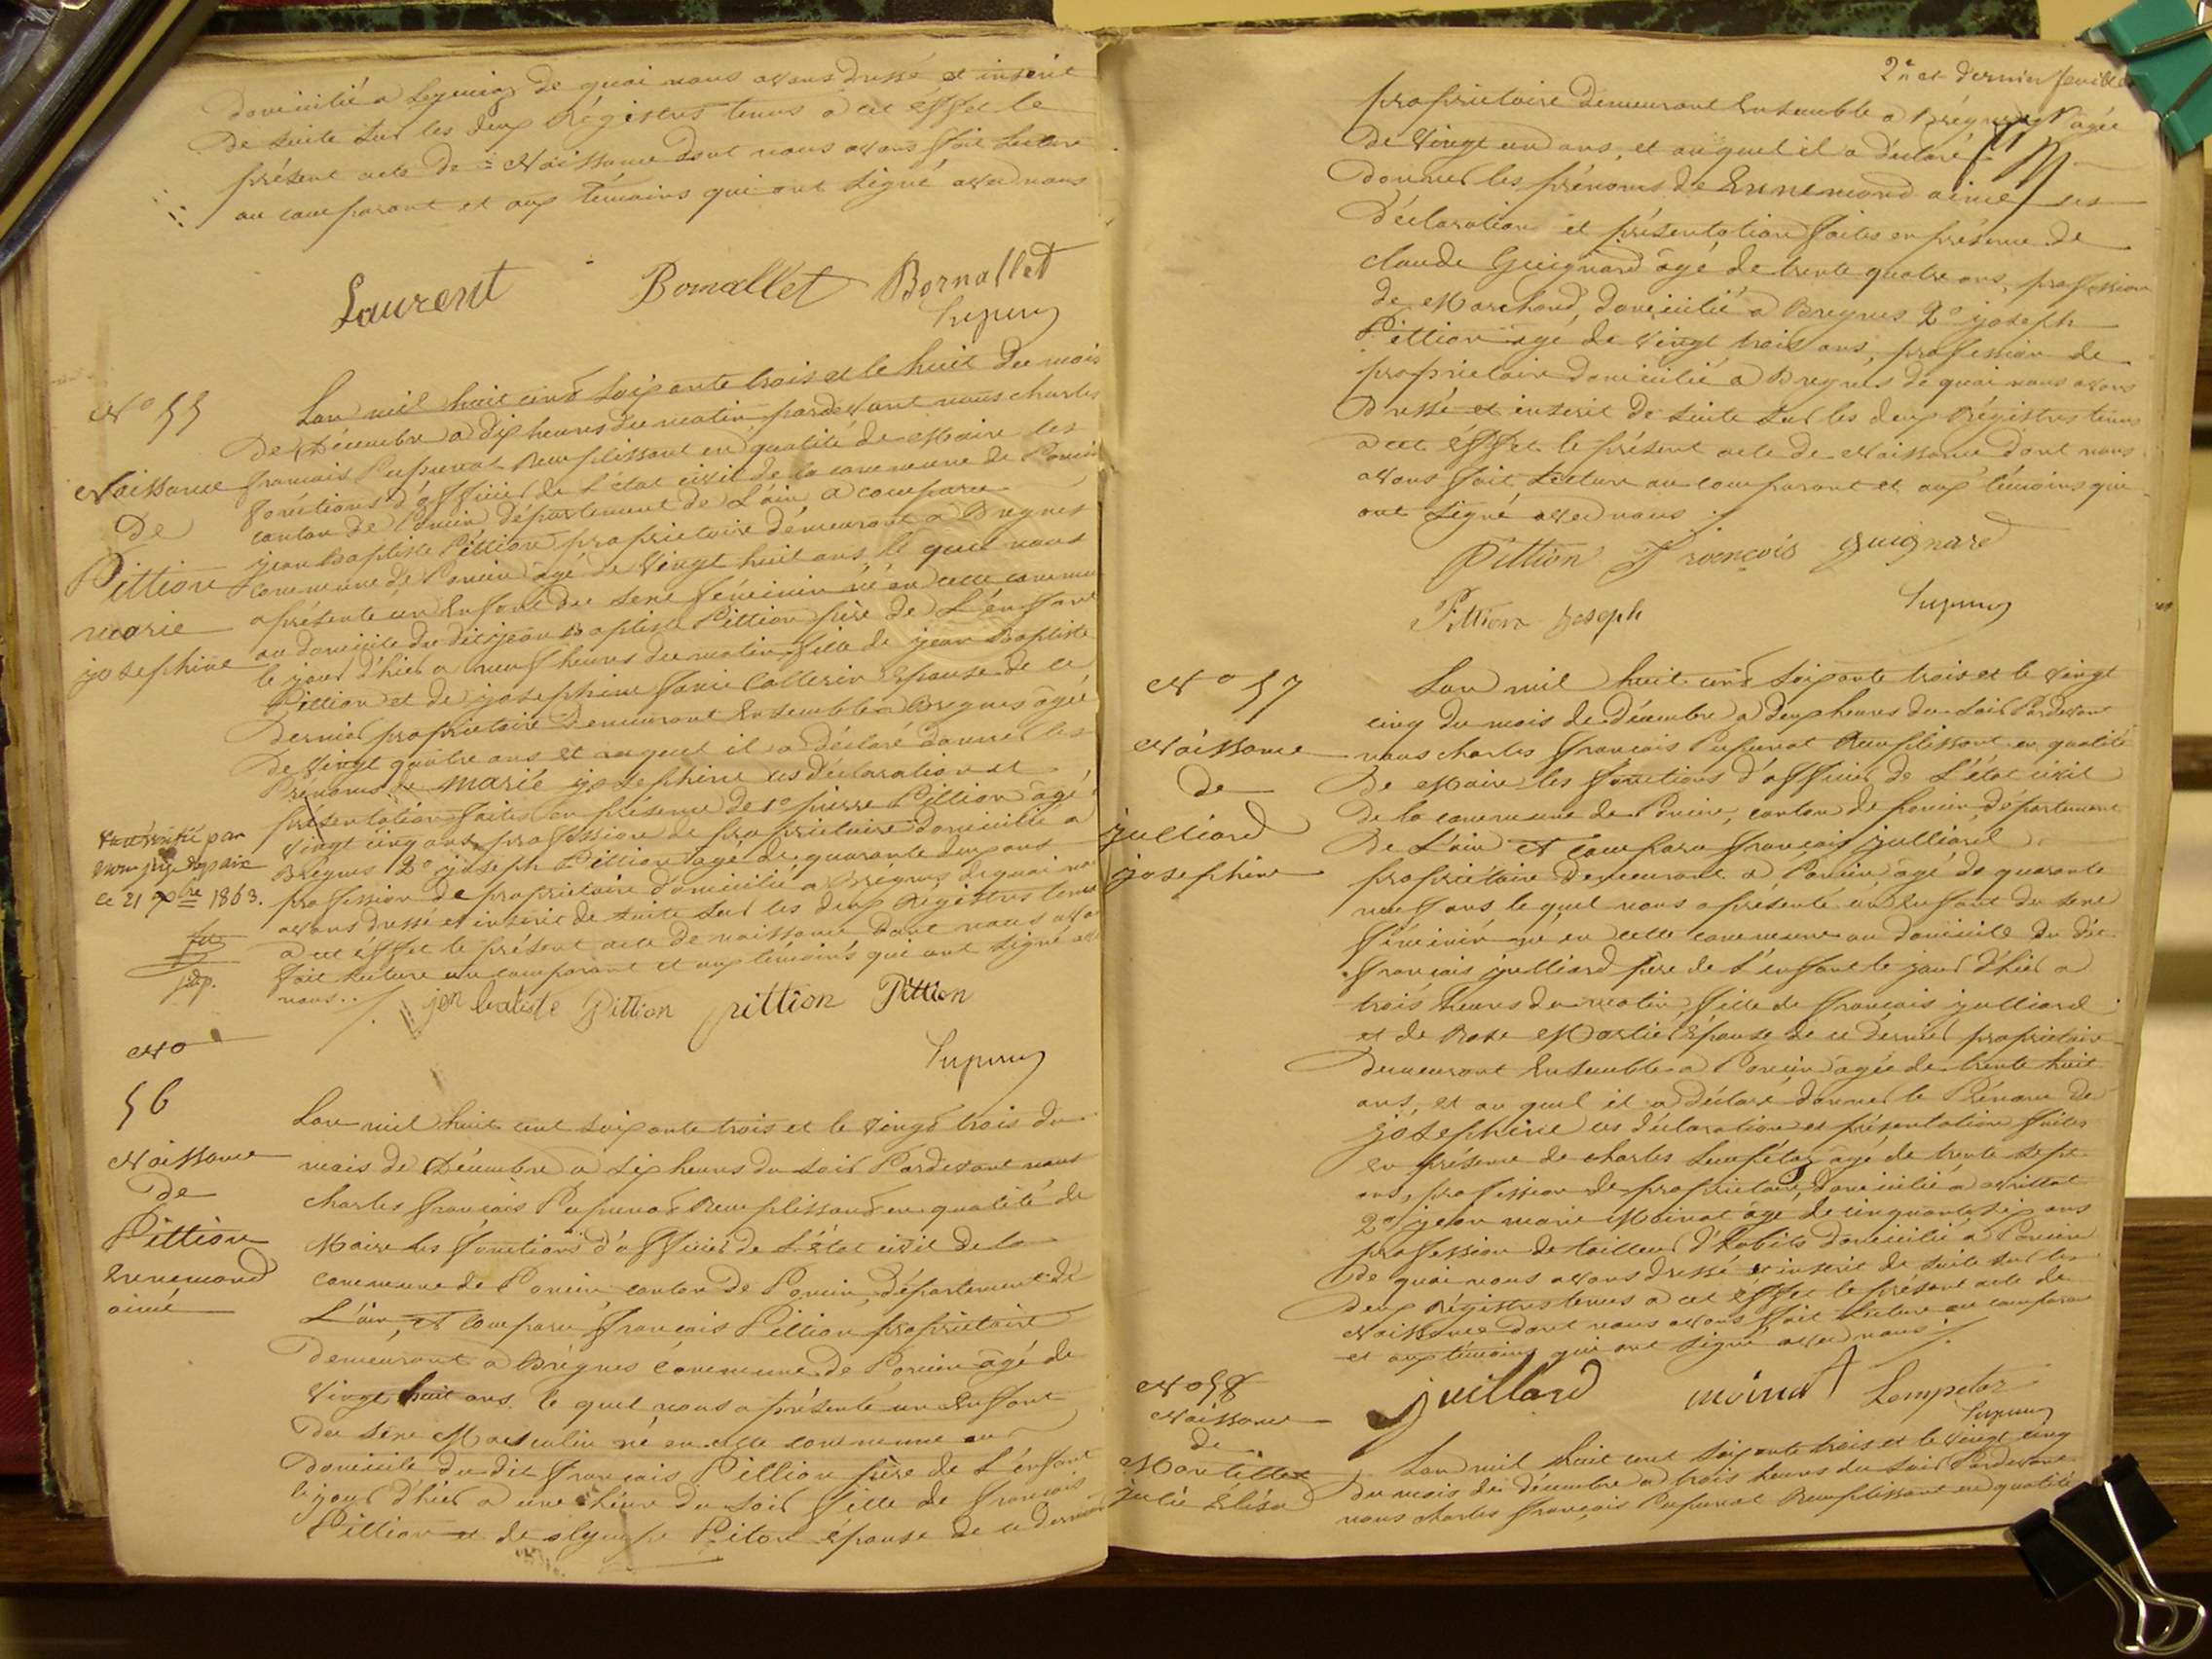 domicilié a Leymiaz de quoi nous avons dressé et inscrit
de suite sur les deux Régistres tenus a cet éffet le
présent acte de Naissance dont nous avons fait lecture
au comparant et aux témoins qui ont signé avec nous
Laurent Bornallet Bornallet
N° 55
Naissance
De
Pittion
marie
josephine
Lan mil huit cent soixante trois et le huit du mois
De Décembre a dix heures du matin pardevant nous charles
francois Pupunat Remplissant en qualité de Maire les
fonctions d'officier de L'état civil de la commune de Poncin
canton de Poncin département de L'ain a comparu
jean Baptiste Pittion propriétaire démeurant a Bregnes
commune de Poncin âgé de vingt huit ans, le quel nous
a présenté un Enfant du sexe féminin né en cette commune
au domicile du dit jean Baptiste Pittion père de L'enfant
le jour d'hier a neuf heures du matin fille de jean Baptiste
Pittion et de josephine Collerin Epouse de ce
dernier propriétaire Demeurant Ensemble a Bregnes âgée
de vingt quatre ans et auquel il a déclaré donner les
Prénoms de marie josephine ces déclaration et
présentation faites en présence de 1° pierre Pittion âgé
vingt cinq ans, profession de propriétaire domicilié a
Bregnes 2° joseph Pittion âgé de quarante deux ans
profession de propriétaire domicilié a Bregnes de quoi nous
avons dressé et inscrit de suite sur les deux Régistres tenus
a cet éffet le présent acte de naissance dont nous avons
fait lecture au comparant et aux témoins qui ont signé avec
nous ./.
par
juge de paix
Ce 21 Xbre 1863.
jdp.
jen batiste Pittion pittion Pittion
N°
56
Naissance
De
Pittion
Ennemond
aimé
Lan mil huit cent soixante trois et le vingt trois du
mois de Décembre a six heures du soir Pardevant nous
charles francois Pupunat Remplissant en qualité de
Maire les fonctions d'officier de L'état civil de la
commune de Poncin canton de Poncin, département de
L'ain, et comparu francois Pittion propriétaire
Demeurant a Brégnes commune de Poncin âgé de
vingt huit ans. le quel nous a présenté un Enfant
Du sexe Masculin né en cette commune au
domicile du dit francois Pittion père de L'enfant
le jour d'hier a une heure du soir fille de francois
Pittion et de olympe Piton épouse de ce dernier
2e et dernier feuillet
propriétaire demeurant Ensemble a Brégnes âgée
de vingt un ans, et auquel il a déclaré
donner les prénoms de Ennemond aimé ces
Déclaration et présentation faites en présence de
claude Guignard âgé de trente quatre ans, profession
de Marchand, domicilié a Bregnes 2° joseph
Pittion âgé de vingt trois ans, profession de
propriétaire domicilié a Bregnes de quoi nous avons
Dressé et inscrit de suite sur les deux Régistres tenus
a cet éffet le présent acte de Naissance dont nous
avons fait Lecture au comparant et aux témoins qui
ont signé avec nous ./.
Pittion François guignard
Pittion Joseph
N° 57
Naissance
de
julliard
josephine
Lan mil huit cent soixante trois et le vingt
cinq du mois de Décembre a deux heures du soir Pardevant
nous charles francois Pupunat Remplissant en qualité
De Maire les fonctions d'officier de L'état civil
De la commune de Poncin, canton de poncin, département
De L'ain et comparu francois julliard
propriétaire Demeurant a Poncin âgé de quarante
neuf ans le quel nous a présenté un Enfant du sexe
féminin né en cette commune au domicile du dit
françois julliard père de L'enfant le jour d'hier a
trois heures du matin, fille de francois julliard
et de Rose Martier Epouse de ce dernier propriétaire
Demeurant Ensemble a Poncin âgée de trente huit
ans, et au quel il a déclaré donner le Prénom de
josephine ces déclaration et présentation faites
en présence de charles Lempelaz âgé de trente sept
ans, profession de propriétaire, domicilié a
2° jean marie Moinat âgé de cinquante six ans
profession de tailleur d'habits domicilié a Poncin
De quoi nous avons dressé et inscrit de suite sur les
deux Régistres tenus a cet éffet le présent acte de
Naissance dont nous avons fait lecture au comparant
et aux témoins qui ont signé avec nous ./.
juillard moinat Lempelaz
N° 58
Naissance
de
Montillet
julie Eliza
Lan mil huit cent soixante trois et le vingt cinq
Du mois de décembre a trois heures du soir Pardevant
nous charles françois Pupunat Remplissant en qualité